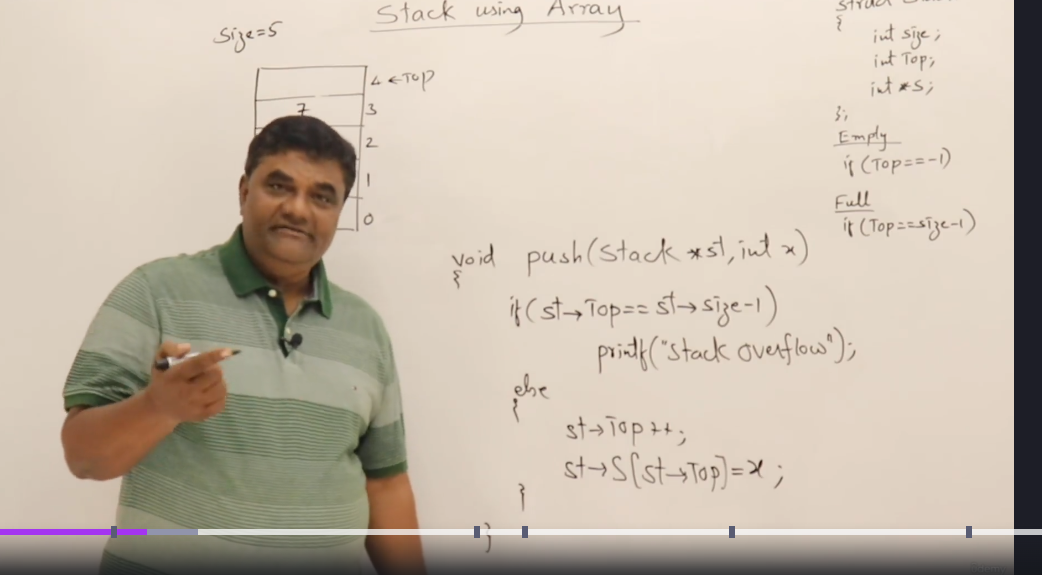 Stack using Array
Size=5
4 ←Top
7
3
2
1
0
{
int size;
int Top;
int *S;
};
Empty
if (Top==-1)
Full
if (Top==size-1)
void push(Stack *st, int x)
{
if(st→Top==st→size-1)
printf("Stack overflow");
else
{
st→Top++;
st→S[st→Top]=x;
}
}